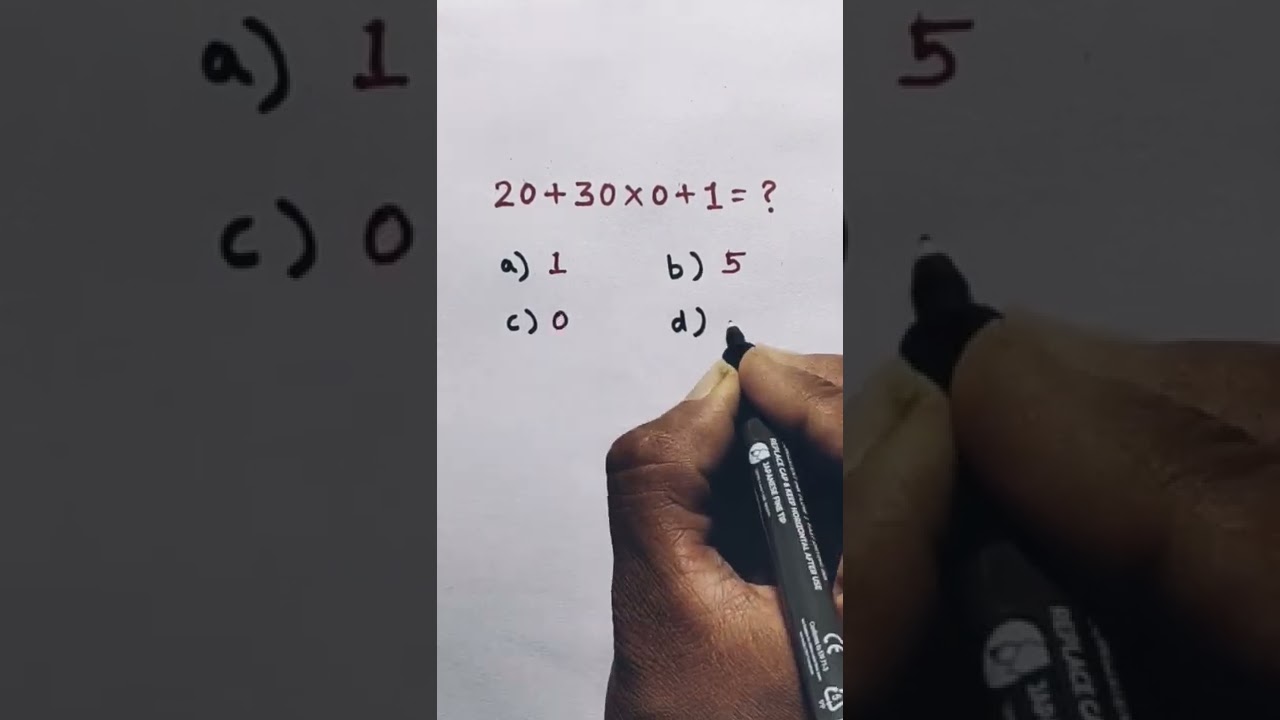 20+30×0+1=?
a) 1 b) 5
c) 0 d)
REPLACE CAP & KEEP HORIZONTAL AFTER USE
JAPANESE FINE TIP
CE
a) 1 5
c) 0
REPLACE CAP
JAPA